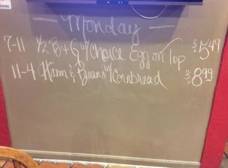 Monday
7-11 1/2 B+G w/ Choice Egg on Top $5.49
11-4 Ham & Beans w/ Cornbread $8.99